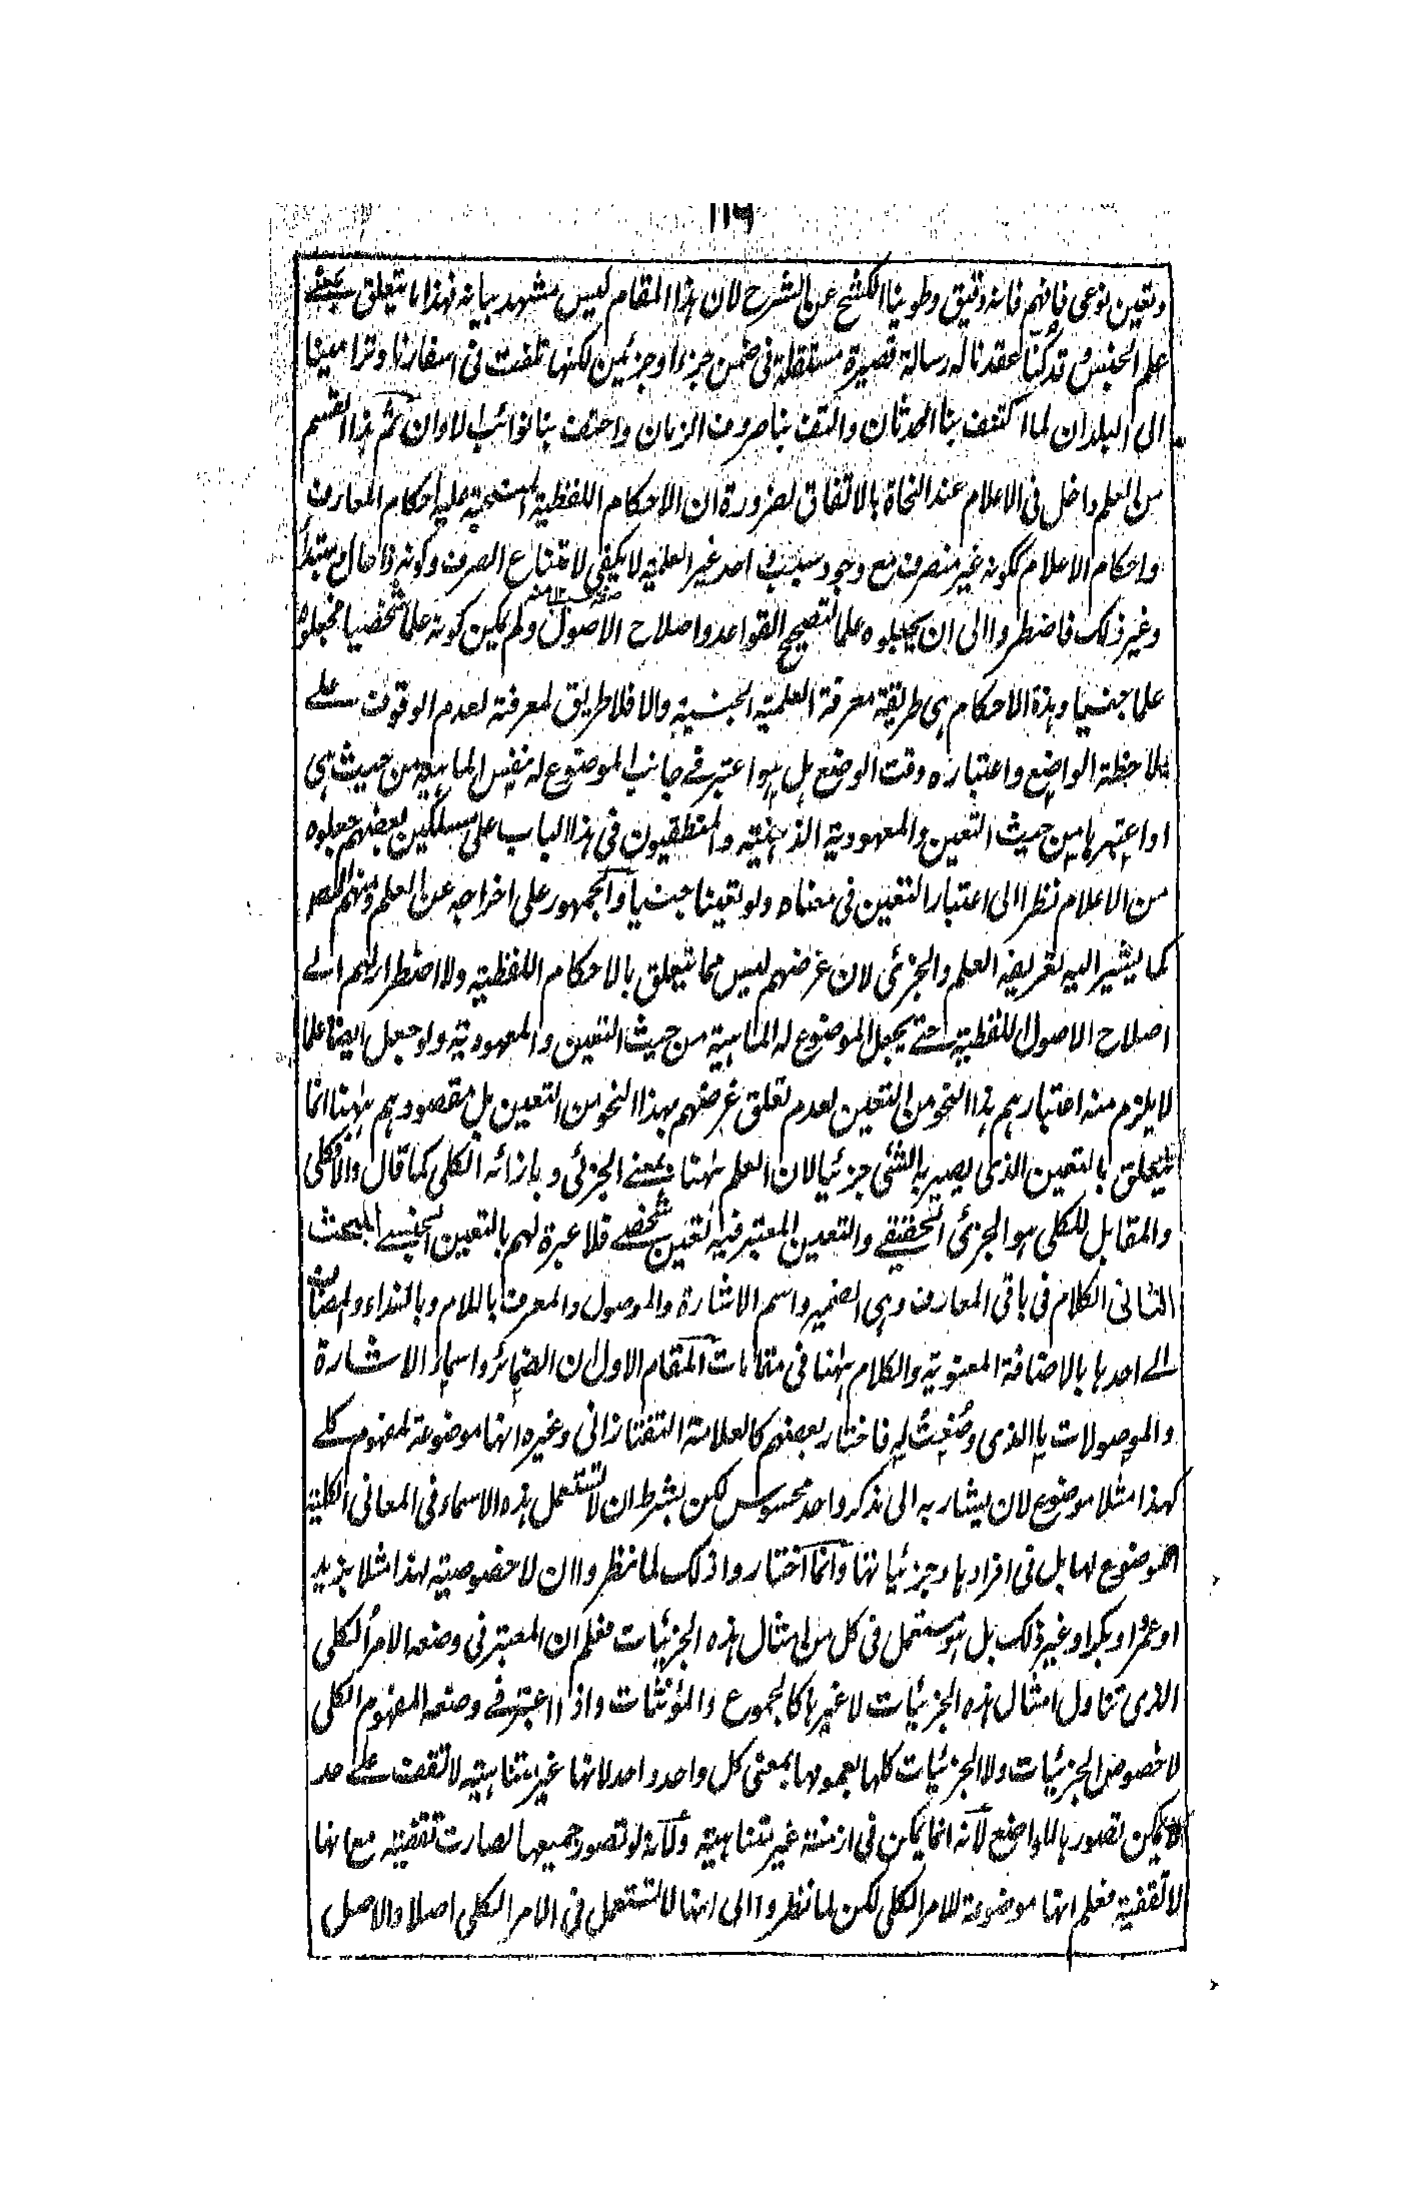 ١١٩
وتعين نوعى فافهم فانه دقيق وطوينا الكشح عن الشرح لان هذا المقام ليس مشهد بيانه فهذا ما يتعلق بمعنى
علم الجنس وقد كنا عقدنا له رسالة قصيرة مستقلة فى ضمن جزء او جزئين لكنها تلفت فى اسفارنا وترامينا
الى البلدان لما اكتنف بنا الحدثان والتف بنا صروف الزمان واحتف بنا نوائب الاوان ثم هذا القسم
من العلم داخل فى الاعلام عند النحاة بالاتفاق لضرورة ان الاحكام اللفظية عليه احكام المعارف
واحكام الاعلام ككونه غير منصرف مع وجود سبب واحد غير العلمية لا يكفى لامتناع الصرف وكونه ذا حال ومبتدأ
وغير ذلك فاضطروا الى ان يجعلوه علما لتصحيح القواعد واصلاح الاصول ولم يمكن كونه علما شخصيا فجعلوه
علما جنسيا وهذه الاحكام هى طريقة معرفة العلمية الجنسية والا فلا طريق لمعرفته لعدم الوقوف على
ملاحظة الواضع واعتباره وقت الوضع هل هو اعتبر فى جانب الموضوع له نفس الماهية من حيث هى
او اعتبرها من حيث التعين والمعهودية الذهنية والمنطقيون فى هذا الباب على مسلكين بعضهم جعلوه
من الاعلام نظرا الى اعتبار التعين فى معناه ولو تعينا جنسيا والجمهور على اخراجه عن العلم ومنهم المصـ
كما يشير اليه تعريفه العلم والجزئى لان غرضهم ليس مما يتعلق بالاحكام اللفظية ولا اضطرار لهم الى
اصلاح الاصول اللفظية حتى يجعل الموضوع له الماهية من حيث التعين والمعهودية ولو جعل ايضا علما
لا يلزم منه اعتبارهم هذا النحو من التعين لعدم تعلق غرضهم بهذا النحو من التعين بل مقصودهم ههنا انما
يتعلق بالتعين الذى يصير به الشئ جزئيا لان العلم ههنا بمعنى الجزئى وبازائه الكلى كما قال والا فكلى
والمقابل للكلى هو الجزئى الحقيقى والتعين المعتبر فيه التعين شخصى فلا عبرة لهم بالتعين الجنسى المبحث
الثانى الكلام فى باقى المعارف وهى الضمير واسم الاشارة والموصول والمعرف باللام وبالنداء والمضاف
الى احدها بالاضافة المعنوية والكلام ههنا فى مقامات المقام الاول ان الضمائر واسماء الاشارة
والموصولات ما الذى وضعت له فاختار بعضهم كالعلامة التفتازانى وغيره انها موضوعة لمفهوم كلى
كهذا مثلا موضوع لان يشار به الى مذكر واحد محسوس لكن بشرط ان لا تستعمل هذه الاسماء فى المعانى الكلية
الموضوع لها بل فى افرادها وجزئياتها وانما اختاروا ذلك لما نظروا ان لا خصوصية لهذا مثلا بزيد
او عمرو او بكر او غير ذلك بل هو يستعمل فى كل من امثال هذه الجزئيات فعلم ان المعتبر فى وضعه الامر الكلى
الذى تناول امثال هذه الجزئيات لا غيرها كالجموع والمؤنثات واذا اعتبر فى وضعه المفهوم الكلى
لا خصوص الجزئيات ولا الجزئيات كلها بعمومها بمعنى كل واحد واحد لانها غير متناهية لا تقف على حد
لا يمكن تصورها للواضع لانه انما يمكن فى ازمنة غير متناهية ولانه لو تصور جميعها لصارت تقفية مع انها
لا تقفية فعلم انها موضوعة للامر الكلى لكن لما نظروا الى انها لا تستعمل فى الامر الكلى اصلا والاصل